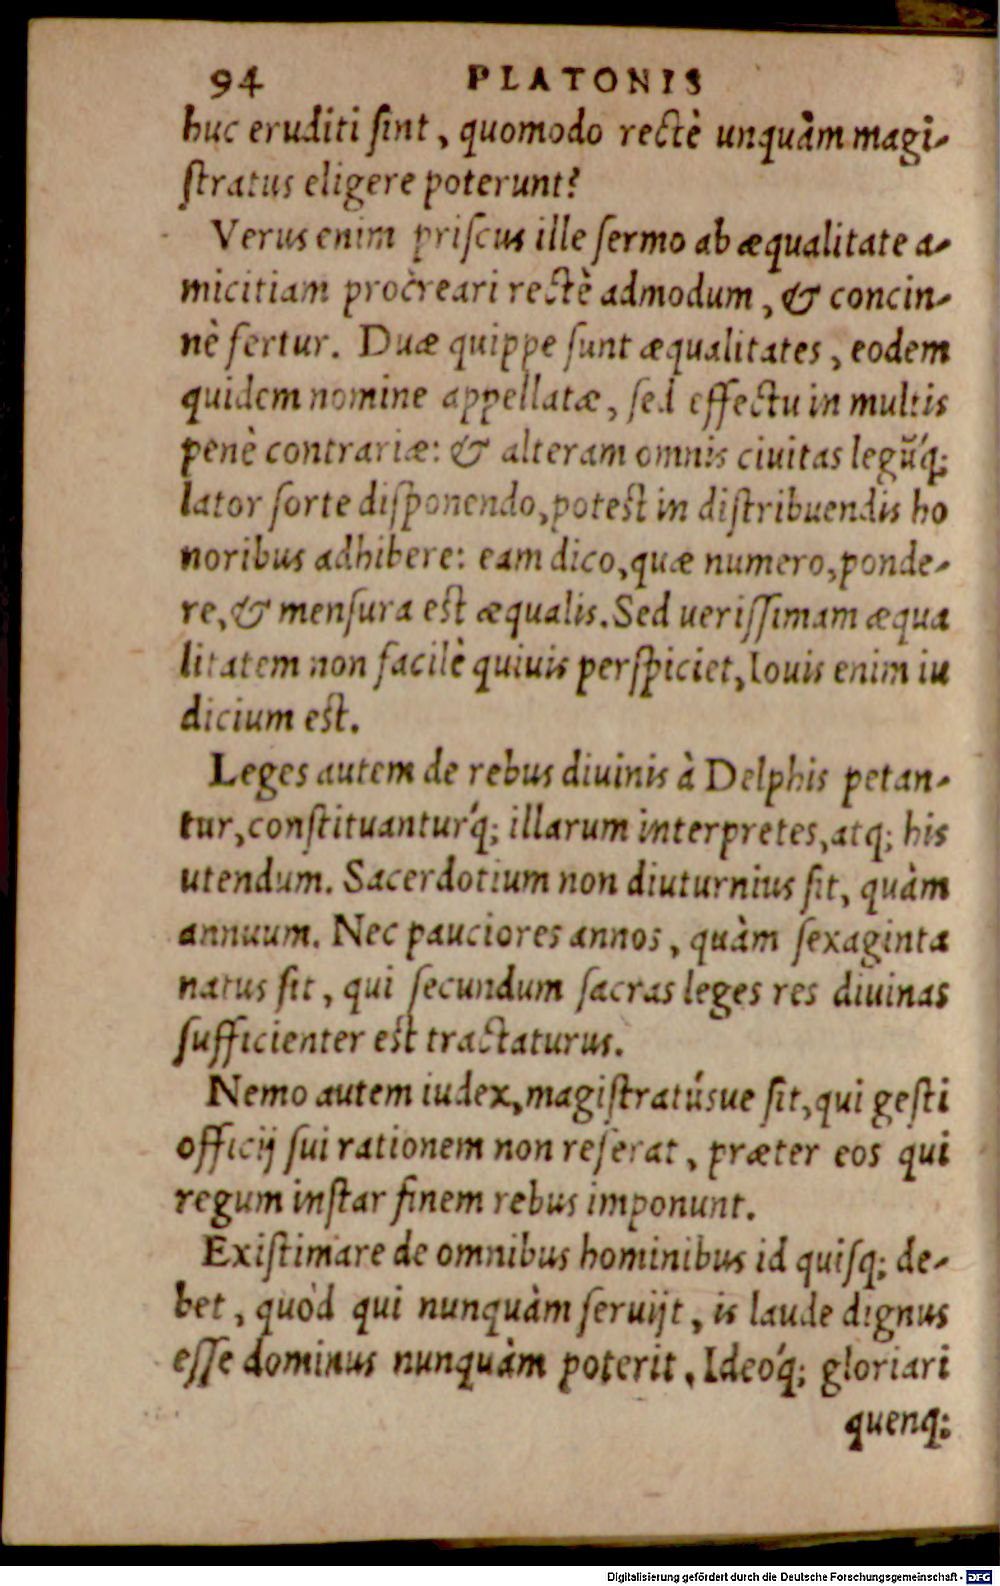 94 PLATONIS
huc eruditi ſint, quomodo rectè unquàm magi-
ſtratus eligere poterunt?
Verus enim priſcus ille ſermo ab æqualitate a-
micitiam procreari rectè admodum, & concin-
nè fertur. Duæ quippe ſunt æqualitates, eodem
quidem nomine appellatæ, ſed effectu in multis
penè contrariæ: & alteram omnis ciuitas legũ´q;
lator ſorte diſponendo, poteſt in diſtribuendis ho
noribus adhibere: eam dico, quæ numero, ponde-
re, & menſura eſt æqualis. Sed ueriſſimam æqua
litatem non facilè quiuis perſpiciet, Iouis enim iu
dicium eſt.
Leges autem de rebus diuinis à Delphis petan-
tur, conſtituantur´q; illarum interpretes, atq; his
utendum. Sacerdotium non diuturnius ſit, quàm
annuum. Nec pauciores annos, quàm ſexaginta
natus ſit, qui ſecundum ſacras leges res diuinas
ſufficienter eſt tractaturus.
Nemo autem iudex, magiſtratúsue ſit, qui geſti
officij ſui rationem non referat, præter eos qui
regum inſtar finem rebus imponunt.
Exiſtimare de omnibus hominibus id quiſq; de-
bet, quòd qui nunquàm ſeruijt, is laude dignus
eſſe dominus nunquàm poterit. Ideó´q; gloriari
quenq;
Digitalisierung gefördert durch die Deutsche Forschungsgemeinschaft - DFG